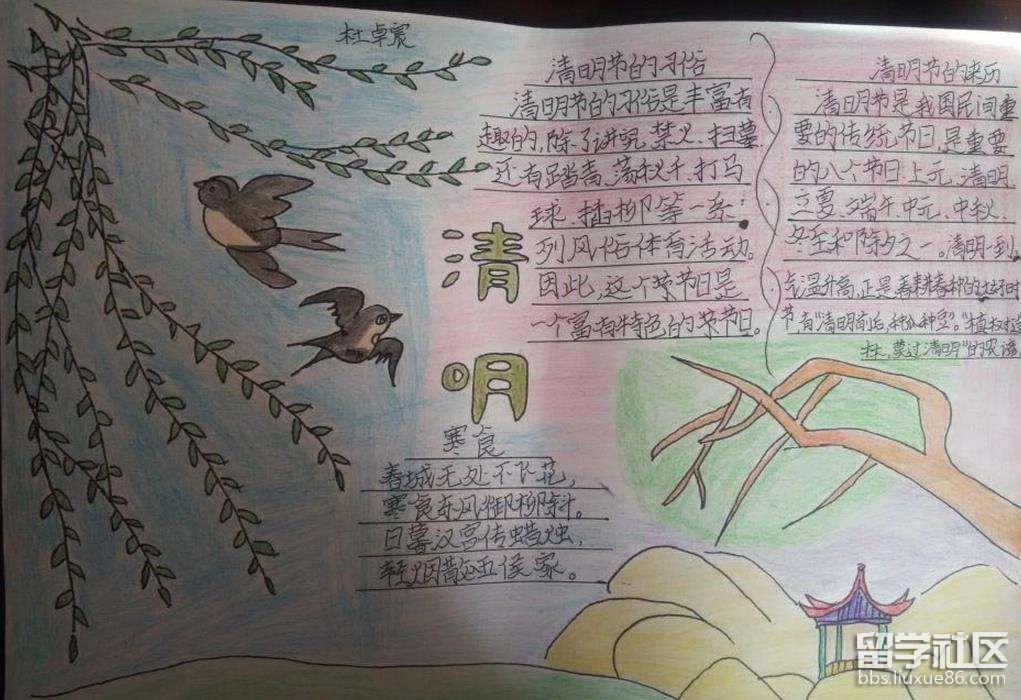 杜卓宸
清明节的习俗
清明节的习俗是丰富有
趣的,除了讲究禁火、扫墓,
还有踏青、荡秋千、打马
球、插柳等一系
列风俗体育活动。
因此,这个节日是
一个富有特色的节日。
清明节的来历
清明节是我国民间重
要的传统节日,是重要
的八个节日上元、清明、
立夏、端午、中元、中秋、
冬至和除夕之一。清明一到,
气温升高,正是春耕春种的大好时
节,有"清明前后,种瓜种豆"。"植树造
林,莫过清明"的农谚
清
明
寒食
春城无处不飞花,
寒食东风御柳斜。
日暮汉宫传蜡烛,
轻烟散五侯家。
留学社区
bbs.liuxue86.com